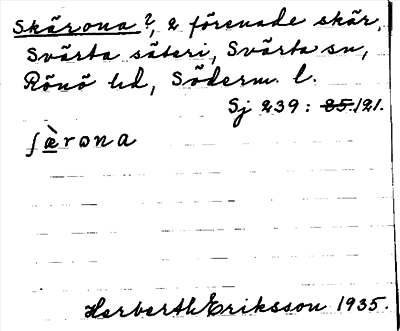 Skärona?, 2 förenade skär,
Svärta säteri, Svärta sn,
Rönö hd, Söderm. l.
Sj 239: 85.121.
ʃæ̀rona
Herberth Eriksson 1935.